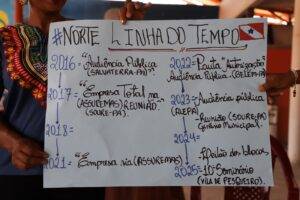 #NORTE LINHA DO TEMPO
2016→ "Audiência Pública
(SALVATERRA-PA)".
2017→ "Empresa Total na
(ASSUREMAS) REUNIÃO
(SOURE-PA)".
2018→
2021→ "Empresa (ASSUREMAS)
2022→ Pauta
Audiência Pública (BELÉM-PA)
2023→ Audiência pública
(ALEPA)
Reunião (SOURE-PA)
Municipal.
2024→
dos blocos
2025→ 10º Seminário
(VILA DE PESQUEIRO).